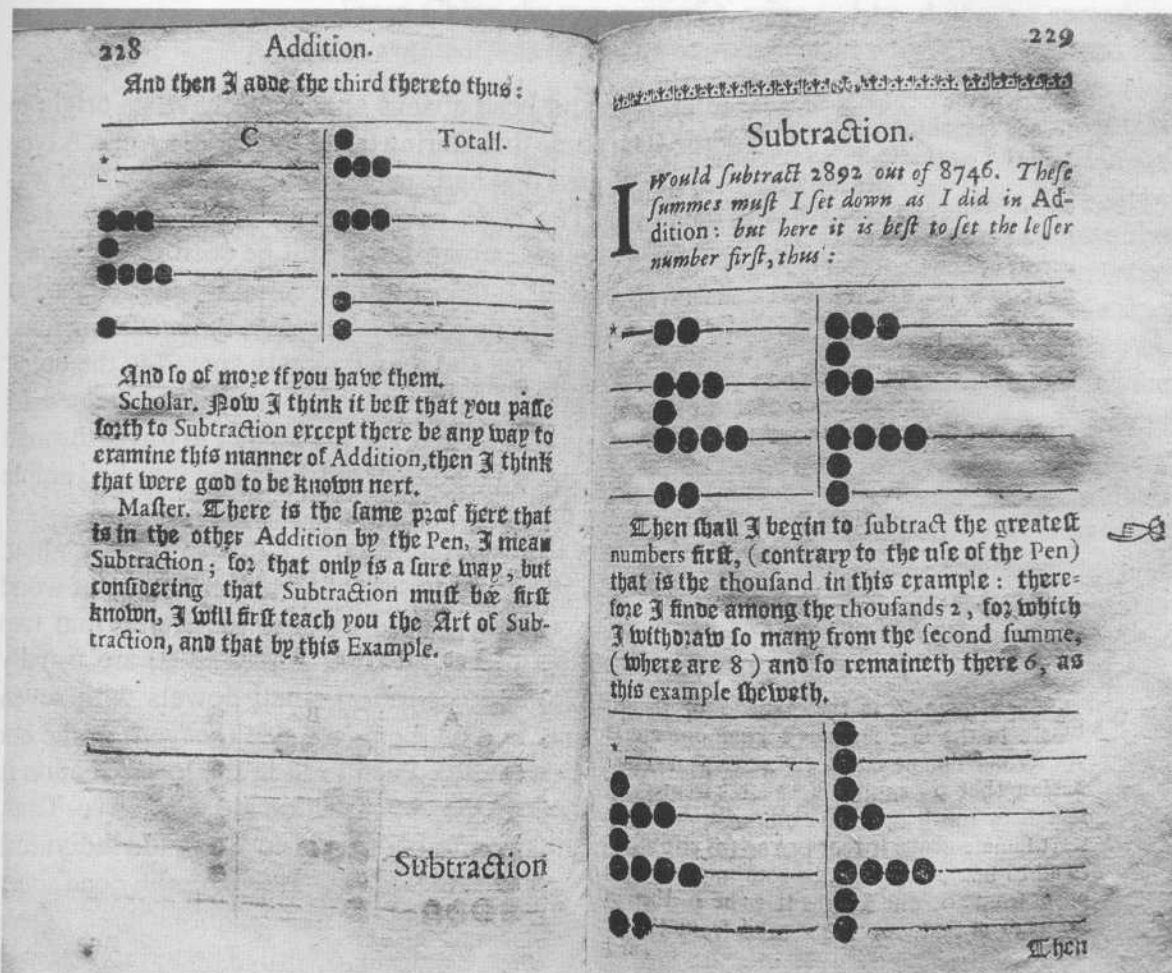 228 Addition.
And then I adde the third thereto thus:
C Totall.
And so of more if you have them.
Scholar. Now I think it best that you passe
forth to Subtraction except there be any way to
examine this manner of Addition, then I think
that were good to be known next.
Master. There is the same proof here that
is in the other Addition by the Pen, I mean
Subtraction; for that only is a sure way, but
considering that Subtraction must bee first
known, I will first teach you the Art of Sub-
traction, and that by this Example.
Subtraction
229
Subtraction.
I Would subtract 2892 out of 8746. These
summes must I set down as I did in Ad-
dition: but here it is best to set the lesser
number first, thus:
Then shall I begin to subtract the greatest
numbers first, (contrary to the use of the Pen)
that is the thousand in this example: there-
fore I finde among the thousands 2, for which
I withdraw so many from the second summe,
(where are 8) and so remaineth there 6, as
this example sheweth.
Then